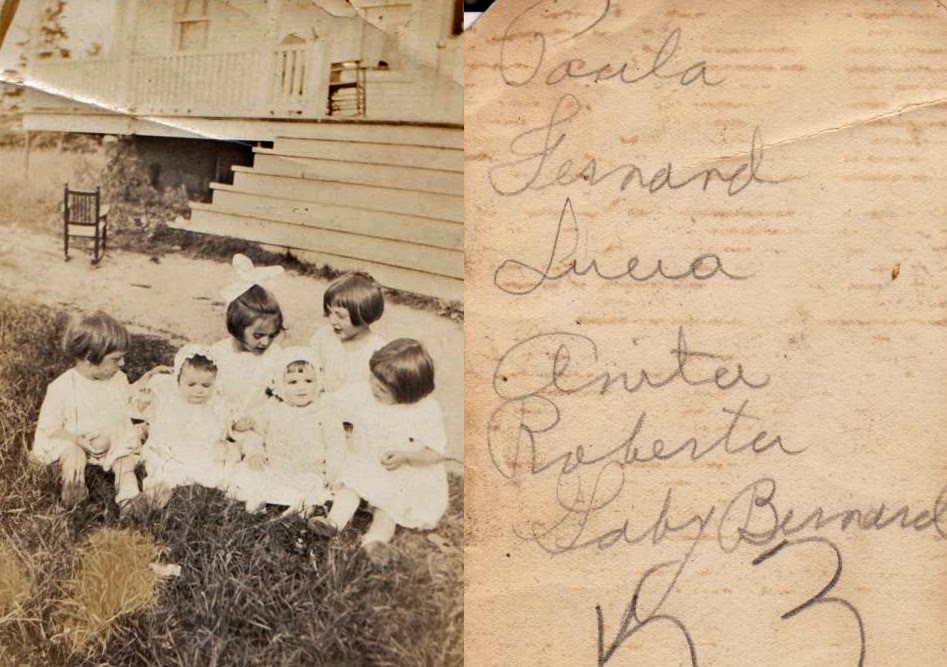 Paula
Fernand
Lucia
Anita
Roberta
Gaby Bernard